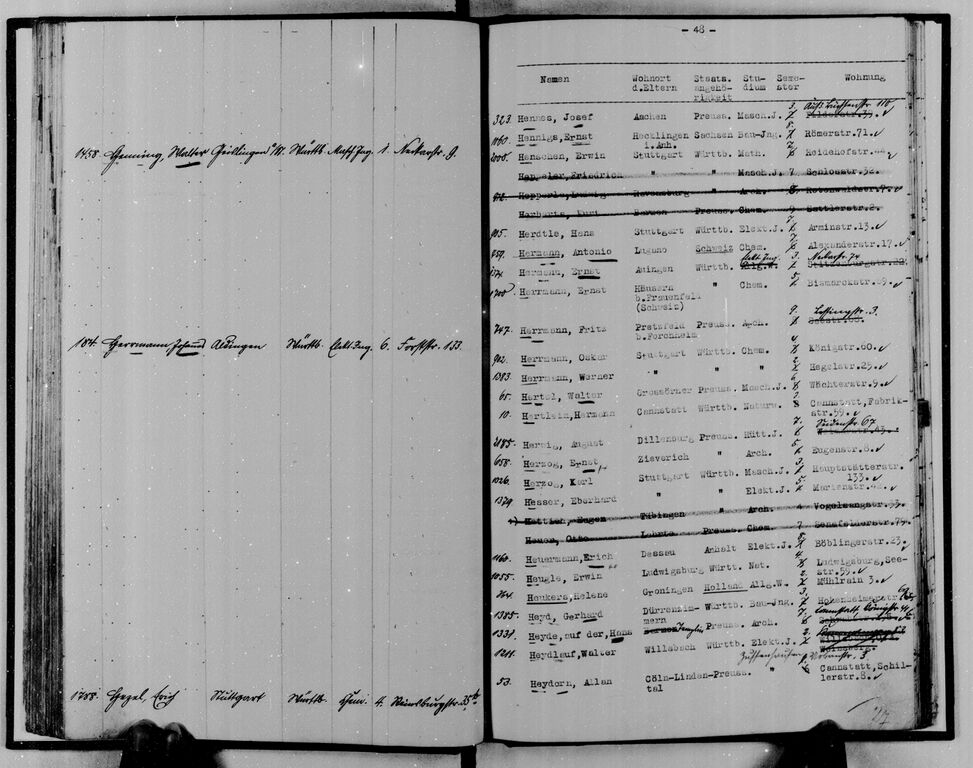 1458. Henning, Walter Geislingen a/St. Württb. Masch.Ing. 1. Neckarstr. 9.
184. Herrmann, Aldingen Württb. Elekt.Ing. 6. Forststr. 133.
1788. Hezel, Erich Stuttgart Württb. Chem. 4. Reinsburgstr. 35
- 48 -
Namen Wohnort d.Eltern Staats. angehö- rigkeit Stu- dium Seme- ster Wohnung
323. Hennes, Josef Aachen Preuss. Masch.J. 3.
1160. Hennigs, Ernst Hecklingen i.Anh. Sachsen Bau-Jng. 8. Römerstr.71.
2000. Henschen, Erwin Stuttgart Württb. Math.
Heppeler, Friedrich " " Masch.J. 7 Schlosstr.52.
Hepperle, Ludwig Ravensburg " Arch. 8.
Preuss. Chem. 9 Sattlerstr.2.
905. Herdtle, Hans Stuttgart Württb. Elekt.J. 7. Arminstr.13.
959. Hermann, Antonio Lugano Schweiz Chem. 7. Alexanderstr.17.
1374. Hermann, Ernst Auingen Württb. Elekt.Ing. 3. Neckarstr. 74
1700. Herrmann, Ernst Häusern b.Frauenfeld (Schweiz) " Chem. 5.
747. Herrmann, Fritz Pretzfeld b.Forchheim Preuss. Arch. 9. Lessingstr. 3.
902. Herrmann, Oskar Stuttgart Württb. Chem. Königstr.60.
1383. Herrmann, Werner " " " 2. Hegelstr.25.
65. Hertel, Walter Grossörner Preuss. Masch.J. 6. Wächterstr.9.
10. Hertlein, Hermann Cannstatt Württb. Naturw. Cannstatt, Fabrik-
str.59.
2185. Herwig, August Dillenburg Preuss. Hütt.J. 7. Seidenstr. 67
658. Herzog, Ernst Zieverich " Arch. Eugenstr.8.
1026. Herzog, Karl Stuttgart Württb. Masch.J. 3. Hauptstätterstr.
133.
1379. Hesser, Eberhard " " Elekt.J. 5.
Hettich, Eugen Tübingen " Arch. Vogelsangstr.
Heuer, Otto Preuss. Chem. 7
1160. Heuermann, Erich Dessau Anhalt Elekt.J. 8. Böblingerstr.23.
1055. Heugle, Erwin Ludwigsburg Württ. Nat. 4. Ludwigsburg, See-
str.59.
264. Heukers, Helene Groningen Holland Allg.W. 2. Mühlrain 3.
1385. Heyd, Gerhard Dürrenzim- mern Württb. Bau-Jng. 3. Hohenheimerstr.
1331. Heyde, auf der, Hans Preuss. Arch. 7.
1211. Heydlauf, Walter Willsbach Württb. Elekt.J. 2.
53. Heydorn, Allan Cöln-Linden- tal Preuss. " Cannstatt, Schil-
lerstr.8.